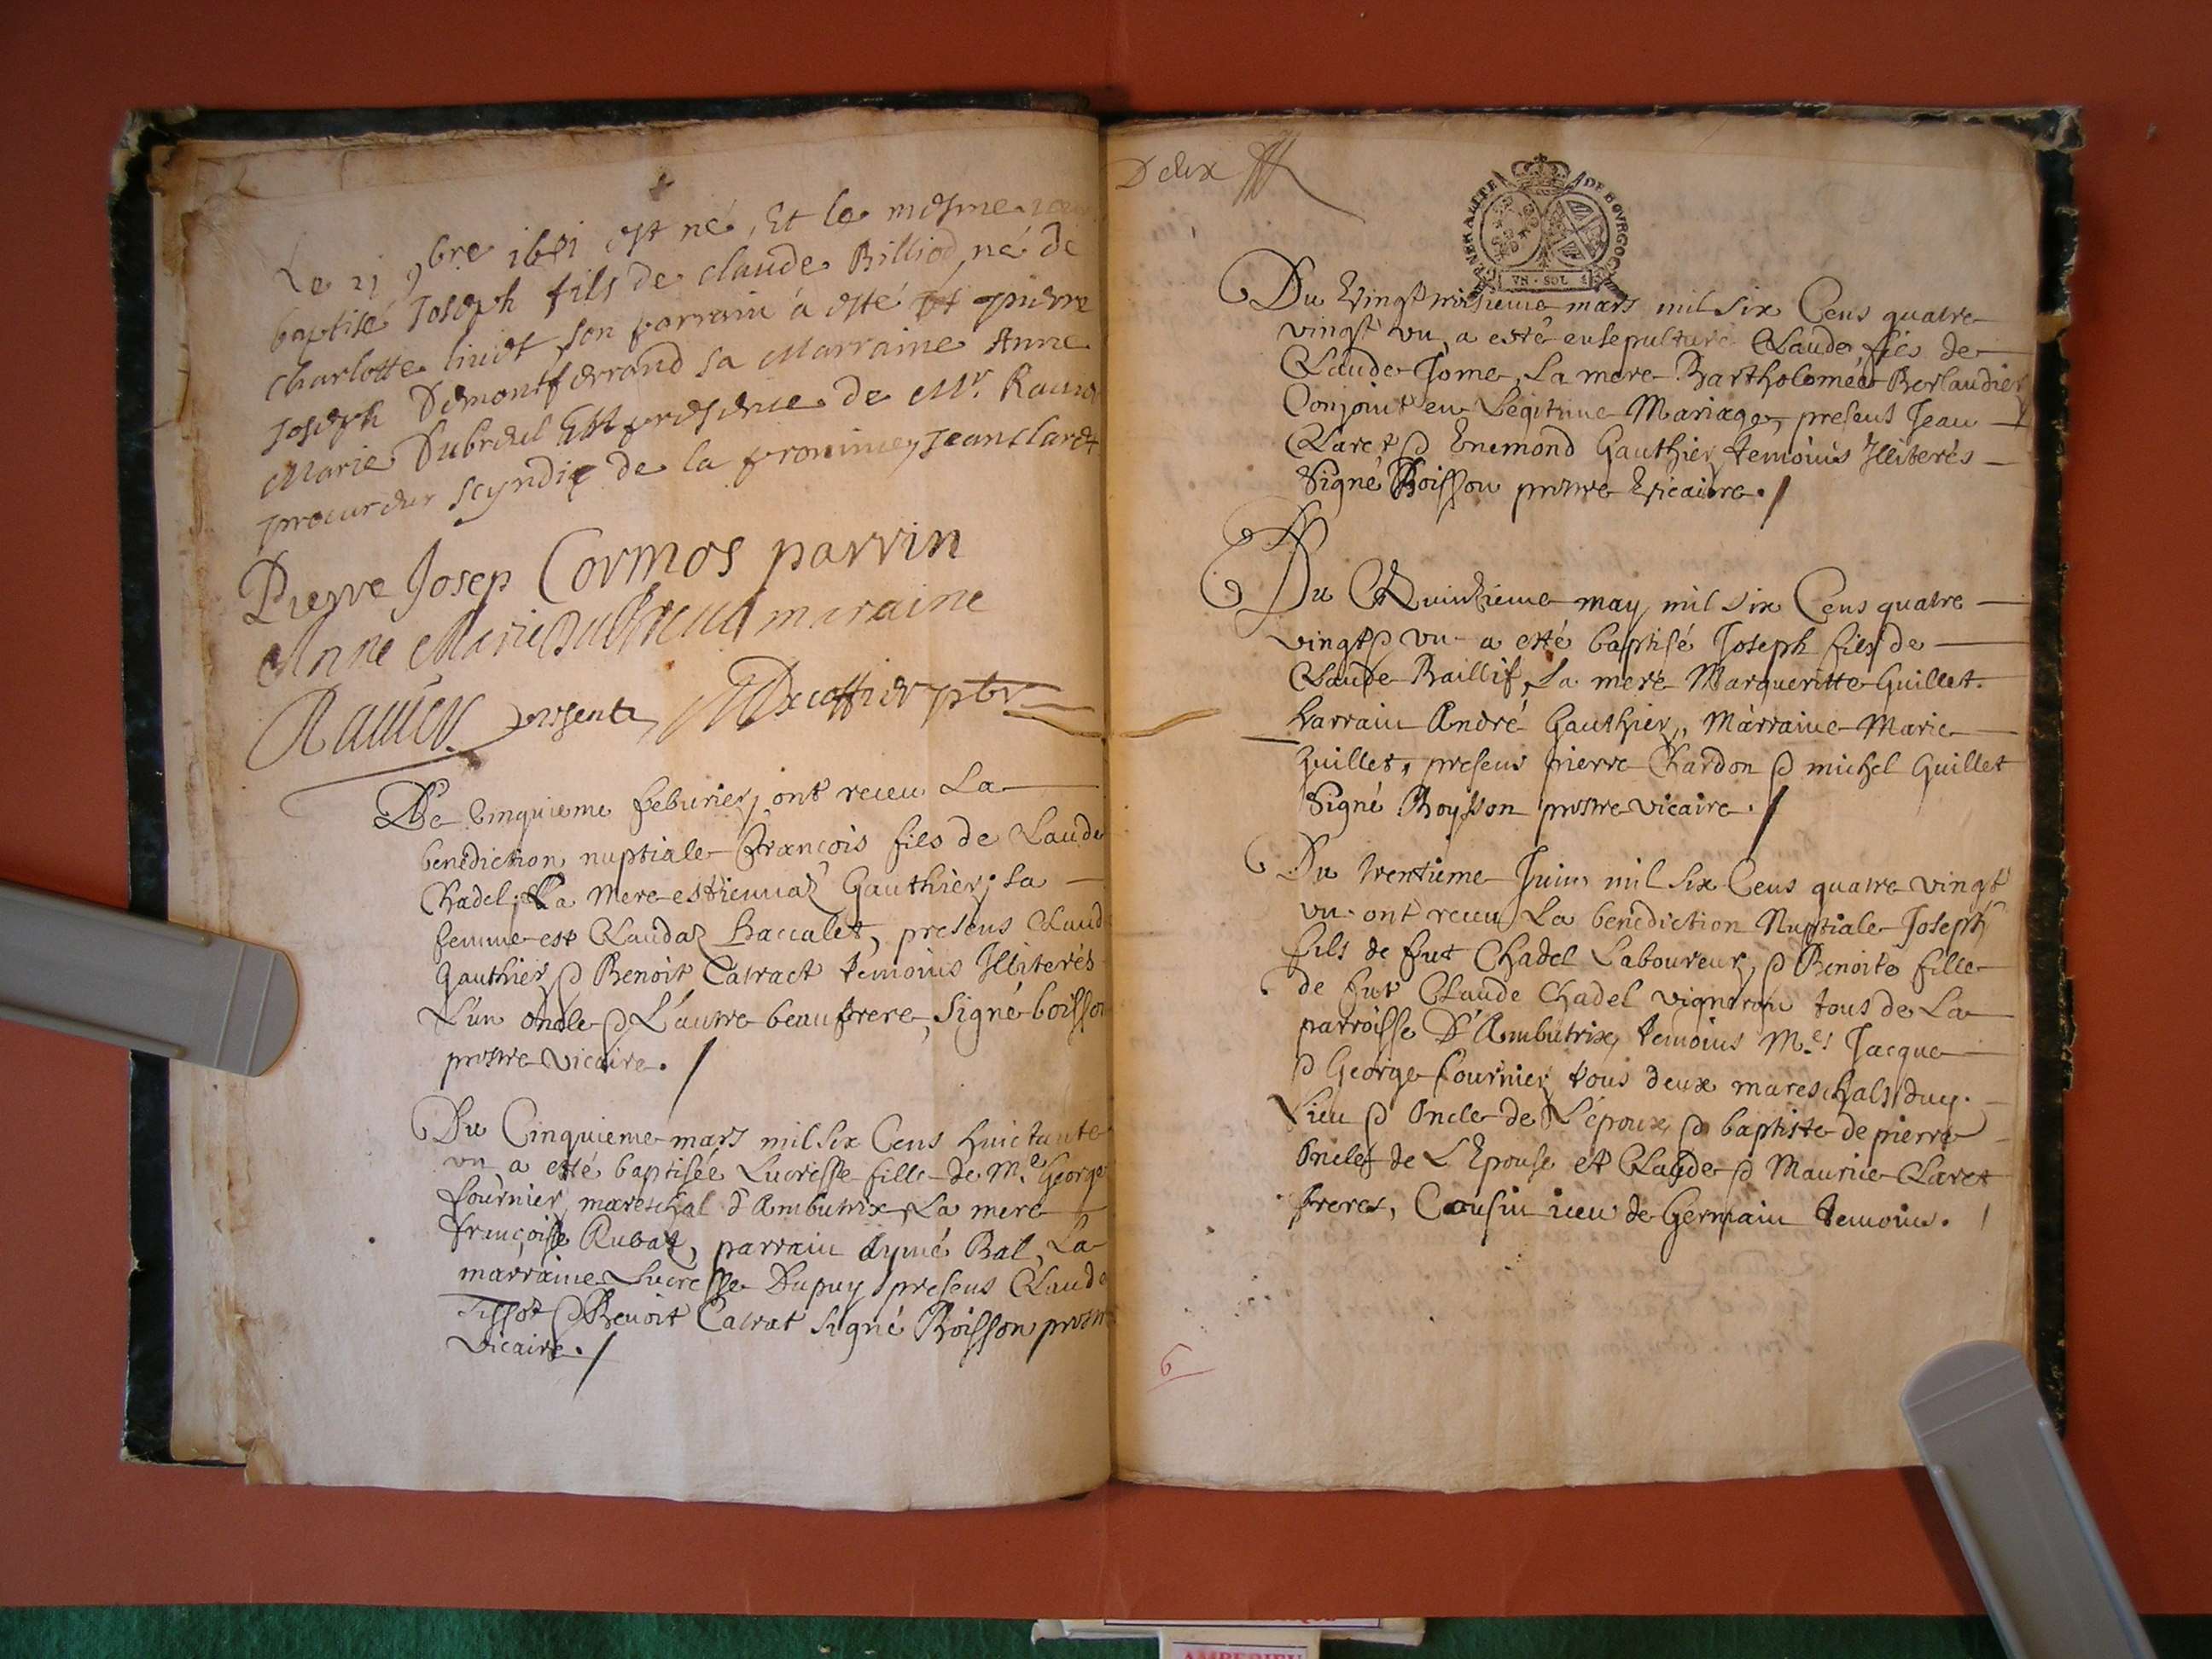 Le 21 9bre 1681 est né, Et le mesme jour
baptisé Joseph fils de claude Billiod, né de
charlotte livet son parrain à esté pierre
Joseph Demontferrand sa Marraine Anne
Marie Dubreul presence de Mr. Ravier
procureur scyndic de la province, Jean claret
Pierre Josep Cormos parrin
Anne Marie Dubreul maraine
Ravier present
Le Cinquieme feburier, ont receu La
benediction nuptiale François fils de Claude
Chadel, La Mere estiennaz Gauthier, sa
femme est Claudaz Baccalet, presens Claude
Gauthier & Benoit Catract temoins Illiterés
L'un oncle & L'autre beaufrere, Signé boisson
prestre vicaire. /
Du Cinquieme mars mil six Cens huictante
un a esté baptisée Lucresse fille de Me. George
fournier mareschal d'Ambutrix, La mere
françoise Rubat, parrain Aymé Bal, La
marraine Lucresse Dupuy presens Claude
Tissot & Benoit Catrat signé Boisson prestre
vicaire. /
Deux
GENERALITE DE BOVRGOGNE
VN · SOL
Du Vingt troisieme mars mil six Cens quatre
vingt un, a esté ensepulturé Claude, fils de
Claude Jome, La mere Bartholomée Berlaudier
Conjoint en Legitime Mariage, presens Jean
Claret & Enemond Gauthier temoins Illiterés
Signé Boisson prestre Vicaire. /
Du Quinzieme may mil six Cens quatre
vingt & un a esté baptisé Joseph fils de
Claude Baillif, La mere Margueritte Guillet.
Parrain André Gauthier, Marraine Marie
Guillet, presens pierre Chardon & michel Guillet
Signé Boysson prestre vicaire. /
Du trentieme Juin mil six Cens quatre vingt
un ont receu La benediction Nuptiale Joseph
fils de fut Chadel Laboureur, & Benoite fille
de fut Claude Chadel vigneron tous de La
parroisse D'Ambutrix, temoins Me.s Jacque
& George fournier tous deux mareschals duy.
Lieu & Oncle de L'époux, & baptiste de pierre
Oncle de L'Epouse et Claude & Maurice Claret
freres, Cousin de Germain temoins. /
6
AMBERIEU